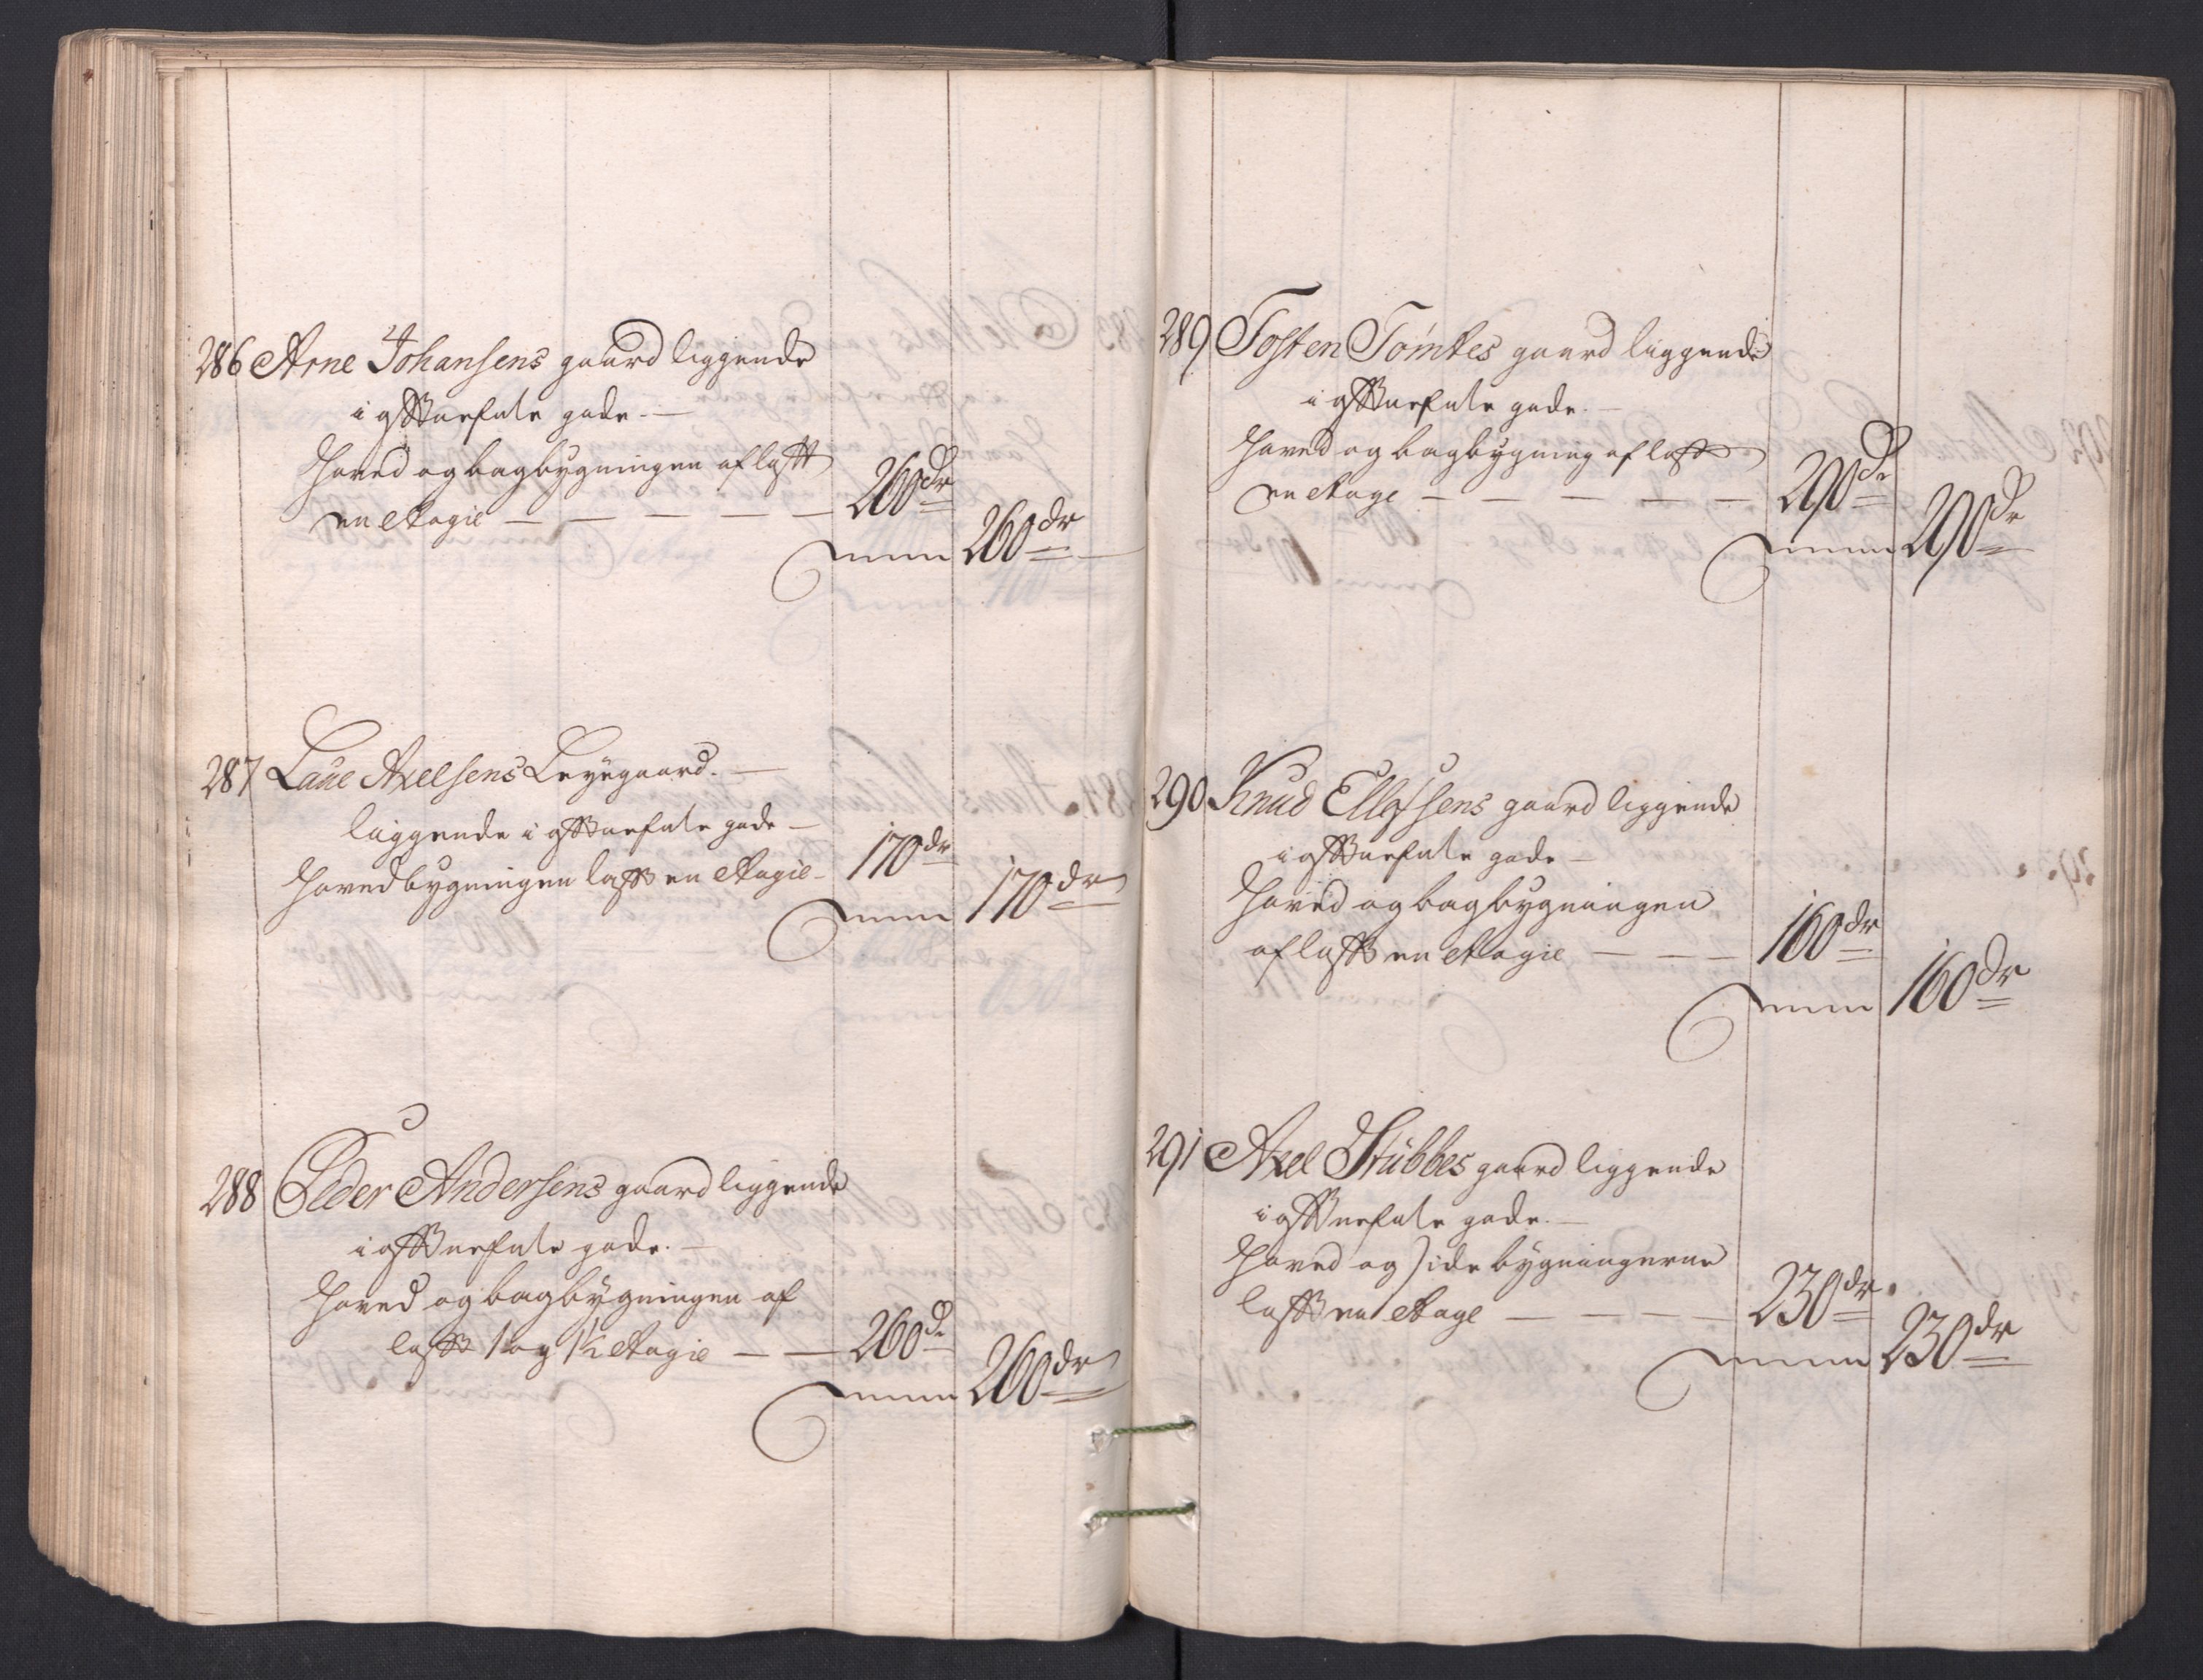 286 Arne Johansens gaard liggende
i offuerfute gade.—
Hoved og bagbygningen af laftt
en etagie — — — — — 260 dr
Summa 260 dr
287 Laue Axelsens Leyegaard.—
liggende i gade —
Hovedbygningen laft en etagie - 170 dr
Summa 170 dr
288 Peder Andersens gaard liggende
i gade.—
Hoved og bagbygningen af
laft 1 og 1½ etagie — — 260 dr
Summa 260 dr
289 Tosten Tomtes gaard liggende
i gade.—
Hoved og bagbygning af laft
en etage — — — — — 290 dr
Summa 290 dr
290 Knud Ellefsens gaard liggende
i gade —
Hoved og bagbygningen
af laft en etagie — — — 160 dr
Summa 160 dr
291 Axel Stübbes gaard liggende
i gade.—
Hoved og Side bygningerne
laft en etage — — — — 230 dr
Summa 230 dr